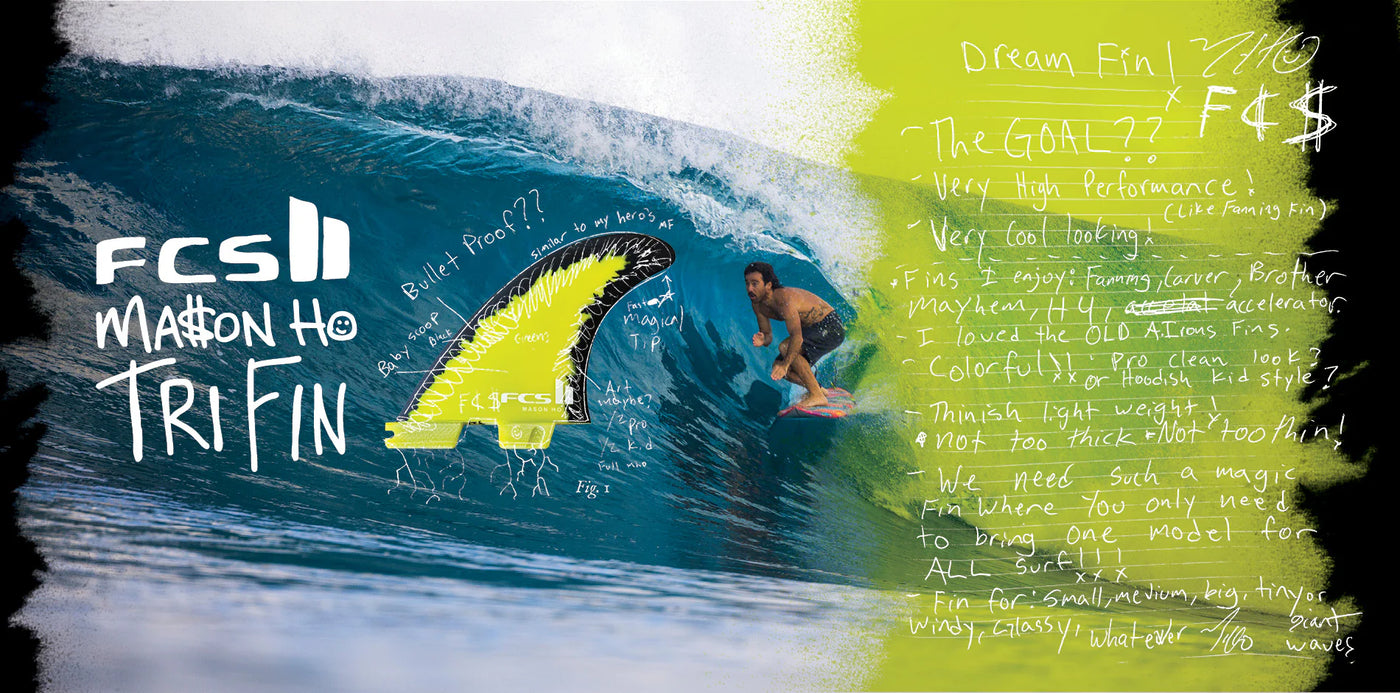 FCS II
MA$ON HO
TRI FIN
Bullet Proof??
similar to my hero's MF
Baby scoop
Black
Green?
Fast
magical
Tip
F¢$ FCS II
MASON HO
Art
maybe?
1/2 Pro
1/2 Kid
Full Mho
Fig. 1
Dream Fin!
x F¢$
- The GOAL??
- Very High Performance!
(Like Fanning Fin)
- Very Cool looking!
Fins I enjoy: Fanning, Carver, Brother
Mayhem, H4, accelerator.
- I loved the OLD A.Irons Fins.
- Colorful!! : Pro clean look?
xx or Hoodish kid style?
- Thinish light weight!
not too thick + Not too thin!
- We need such a magic
Fin where You only need
to bring one model for
ALL surf!!!
xxx
- Fin for: Small, medium, big, tiny or
windy, Glassy, whatever giant
waves